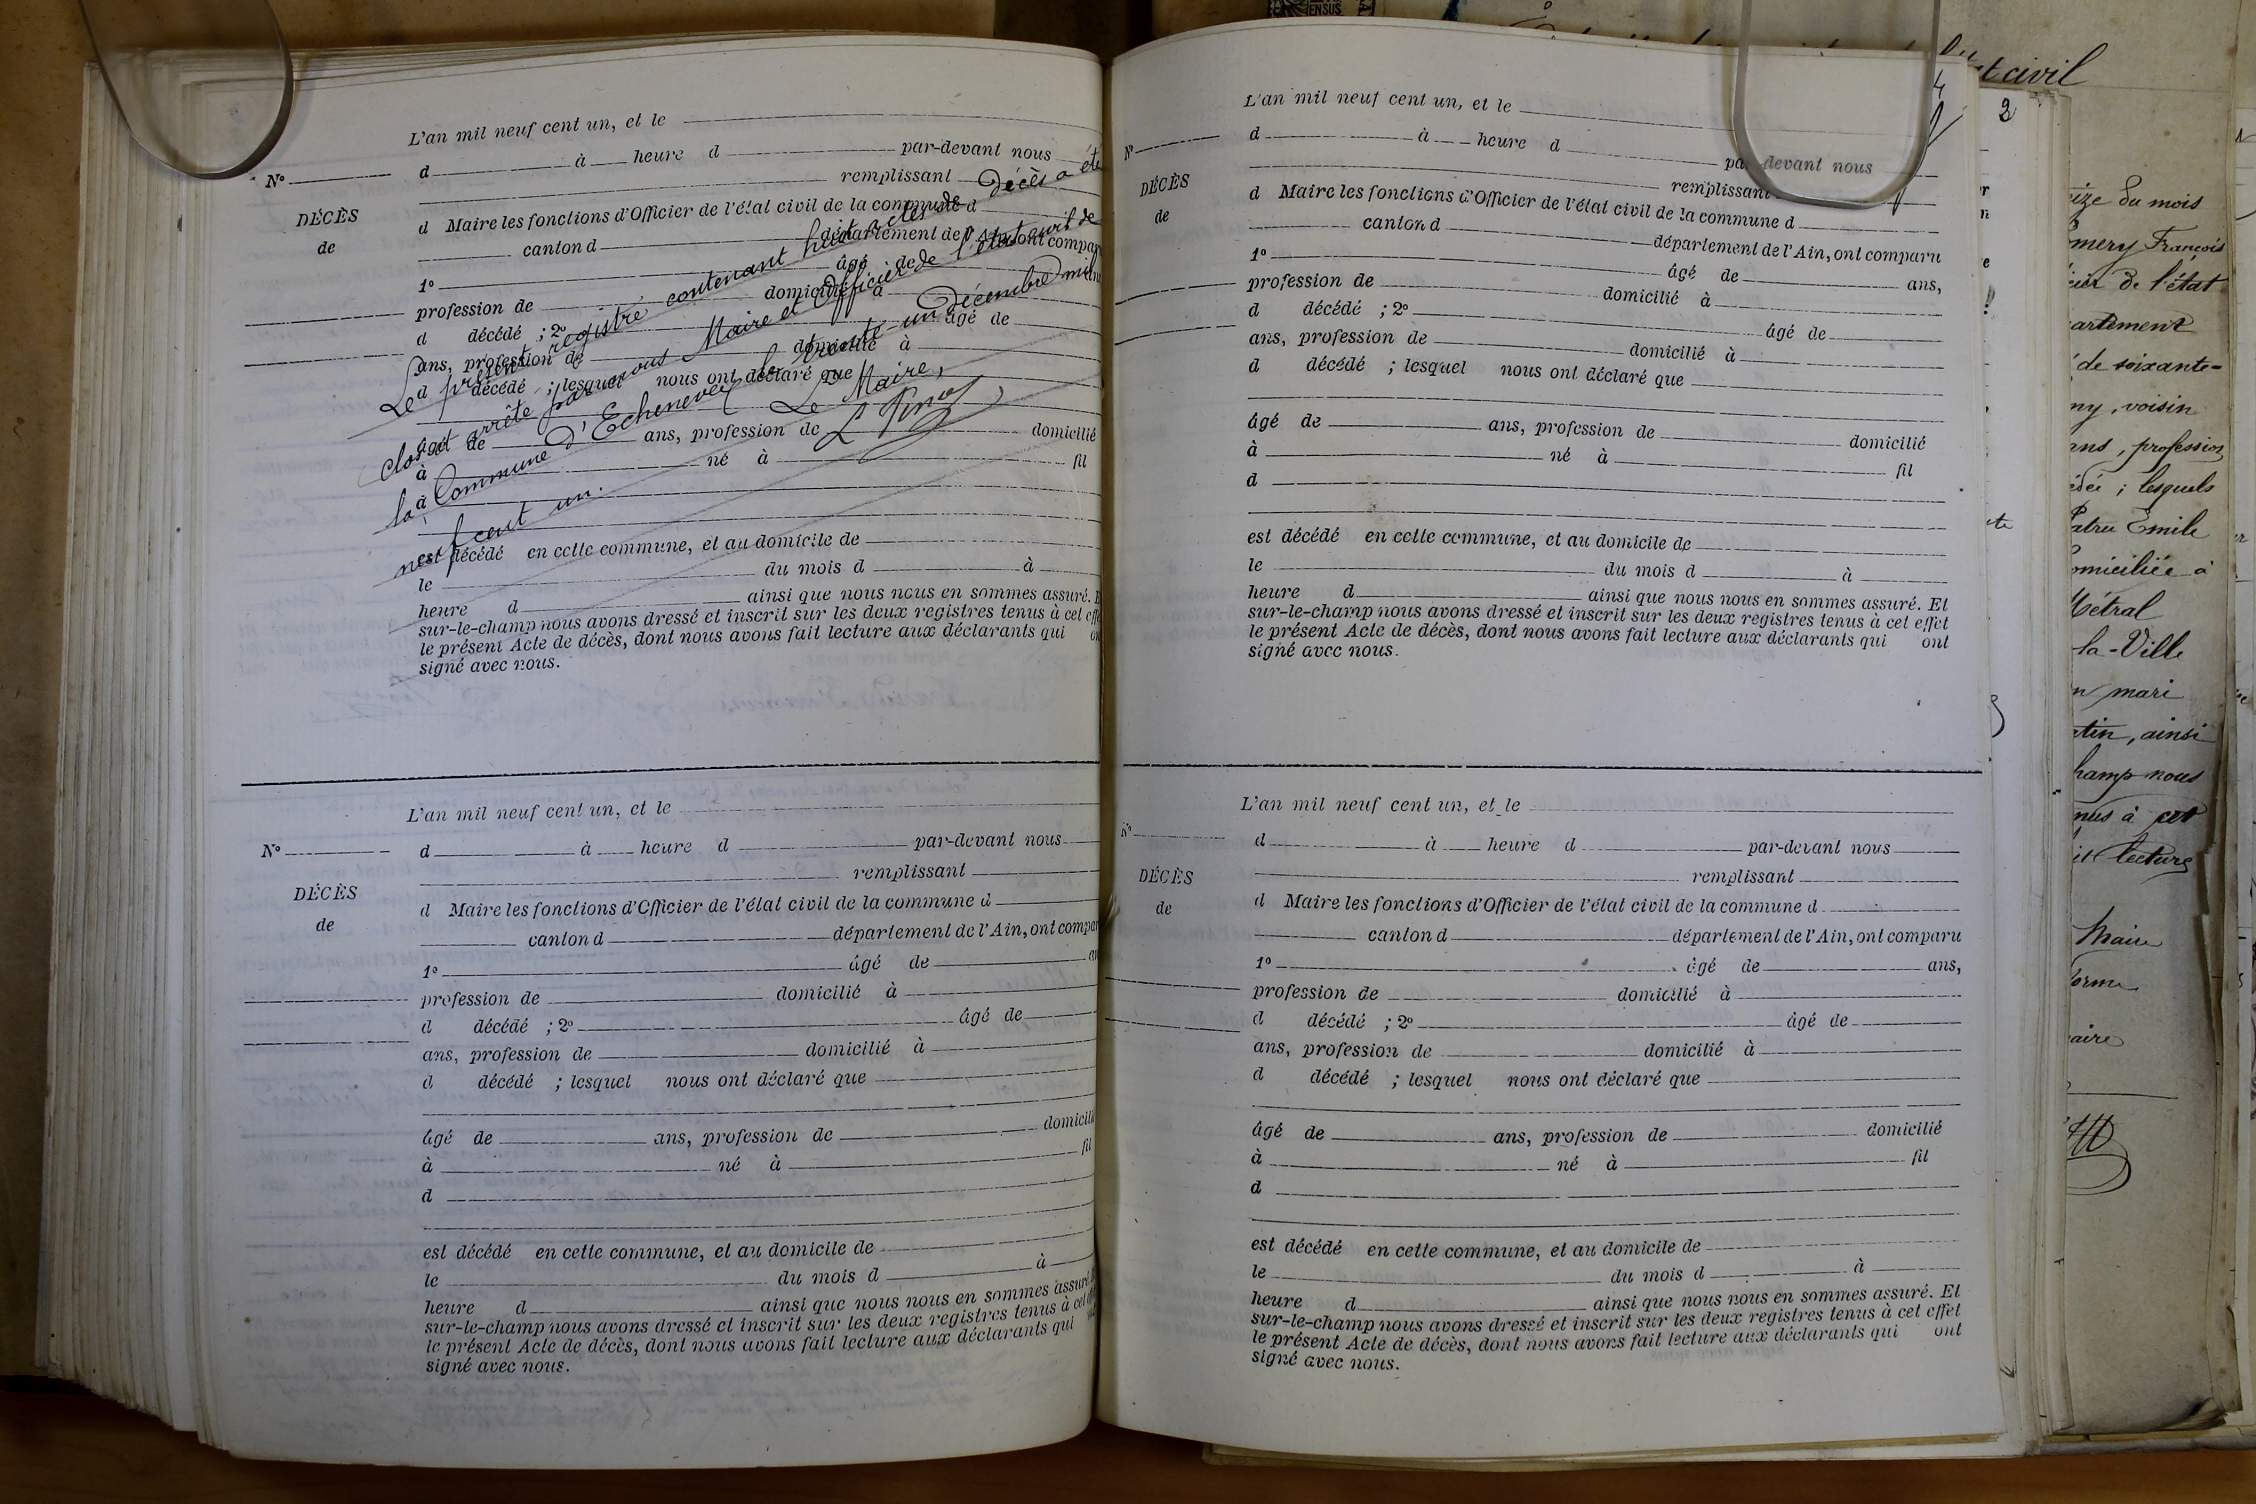 L'an mil neuf cent un, et le
N° d à heure d par-devant nous
remplissant
DÉCÈS
de
d Maire les fonctions d'Officier de l'état civil de la commune d
canton d département de l'Ain, ont compar
1° âgé de
profession de domicilié à
d décédé ; 2° âgé de
ans, profession de domicilié à
d décédé ; lesquel nous ont déclaré que
âgé de ans, profession de domicilié
à né à fil
d
est décédé en cette commune, et au domicile de
le du mois d à
heure d ainsi que nous nous en sommes assuré. E
sur-le-champ nous avons dressé et inscrit sur les deux registres tenus à cet effe
le présent Acte de décès, dont nous avons fait lecture aux déclarants qui on
signé avec nous.
Le présent registre contenant huit actes de Décès a été
clos et arrêté par nous Maire et Officier de l'état civil de
la Commune d'Echenevex le trente-un Décembre mil
neuf cent un.
Le Maire,
L'an mil neuf cent un, et le
N° d à heure d par-devant nous
remplissant
DÉCÈS
de
d Maire les fonctions d'Officier de l'état civil de la commune d
canton d département de l'Ain, ont compar
1° âgé de an
profession de domicilié à
d décédé ; 2° âgé de
ans, profession de domicilié à
d décédé ; lesquel nous ont déclaré que
âgé de ans, profession de domicilié
à né à fil
d
est décédé en cette commune, et au domicile de
le du mois d à
heure d ainsi que nous nous en sommes assuré.
sur-le-champ nous avons dressé et inscrit sur les deux registres tenus à cet
le présent Acte de décès, dont nous avons fait lecture aux déclarants qui
signé avec nous.
L'an mil neuf cent un, et le
N° d à heure d par-devant nous
remplissant
DÉCÈS
de
d Maire les fonctions d'Officier de l'état civil de la commune d
canton d département de l'Ain, ont comparu
1° âgé de ans,
profession de domicilié à
d décédé ; 2° âgé de
ans, profession de domicilié à
d décédé ; lesquel nous ont déclaré que
âgé de ans, profession de domicilié
à né à fil
d
est décédé en cette commune, et au domicile de
le du mois d à
heure d ainsi que nous nous en sommes assuré. Et
sur-le-champ nous avons dressé et inscrit sur les deux registres tenus à cet effet
le présent Acte de décès, dont nous avons fait lecture aux déclarants qui ont
signé avec nous.
L'an mil neuf cent un, et le
N° d à heure d par-devant nous
remplissant
DÉCÈS
de
d Maire les fonctions d'Officier de l'état civil de la commune d
canton d département de l'Ain, ont comparu
1° âgé de ans,
profession de domicilié à
d décédé ; 2° âgé de
ans, profession de domicilié à
d décédé ; lesquel nous ont déclaré que
âgé de ans, profession de domicilié
à né à fil
d
est décédé en cette commune, et au domicile de
le du mois d à
heure d ainsi que nous nous en sommes assuré. Et
sur-le-champ nous avons dressé et inscrit sur les deux registres tenus à cet effet
le présent Acte de décès, dont nous avons fait lecture aux déclarants qui ont
signé avec nous.
civil
2
du mois
François
de l'état
de soixante-
voisin
profession
lesquels
Emile
domiciliée à
Métral
la-Ville
mari
ainsi
nous
à cet
lecture
Maire